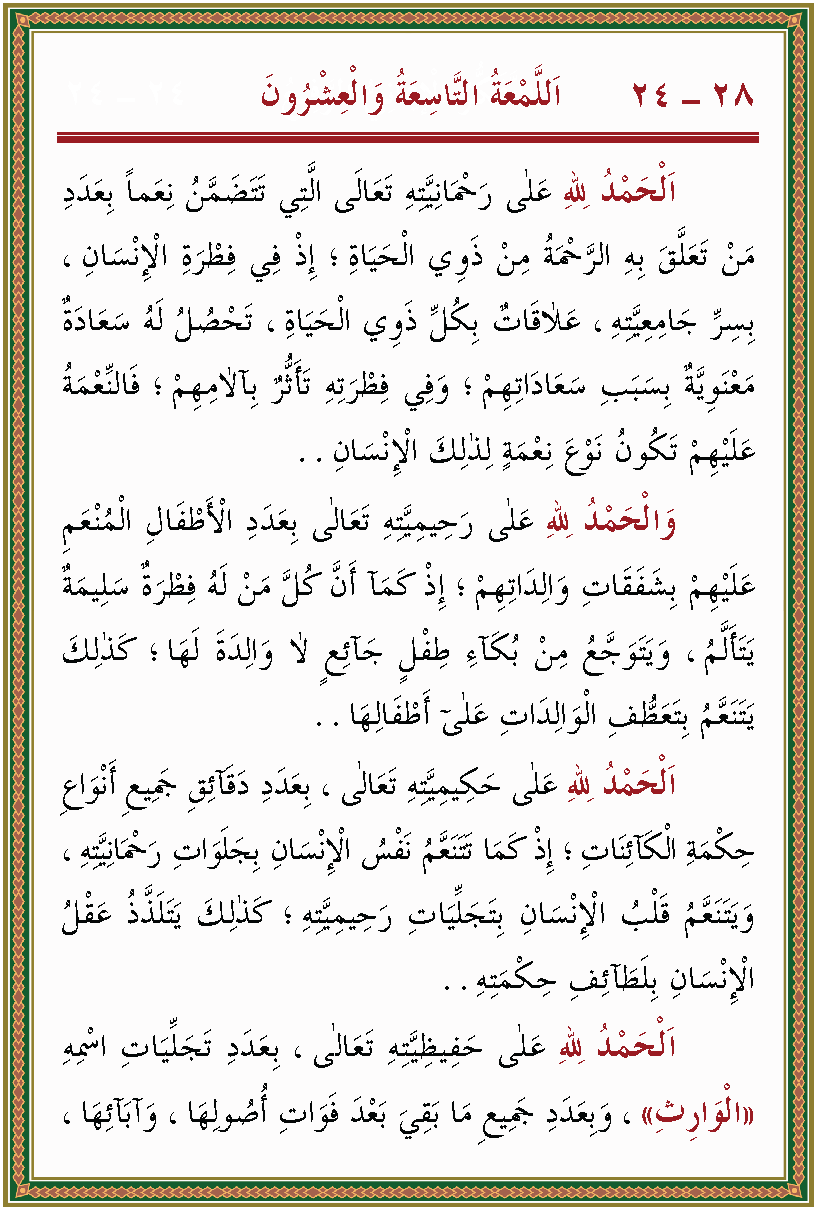 ٢٨ – ٢٤ اَللَّمْعَةُ التَّاسِعَةُ وَالْعِشْرُونَ ٢٤ – ٢٤
اَلْحَمْدُ لِلّٰهِ عَلٰى رَحْمَانِيَّتِهِ تَعَالَى الَّتِي تَتَضَمَّنُ نِعَماً بِعَدَدِ
مَنْ تَعَلَّقَ بِهِ الرَّحْمَةُ مِنْ ذَوِي الْحَيَاةِ ؛ إِذْ فِي فِطْرَةِ الْإِنْسَانِ ،
بِسِرِّ جَامِعِيَّتِهِ ، عَلَاقَاتٌ بِكُلِّ ذَوِي الْحَيَاةِ ، تَحْصُلُ لَهُ سَعَادَةٌ
مَعْنَوِيَّةٌ بِسَبَبِ سَعَادَاتِهِمْ ؛ وَفِي فِطْرَتِهِ تَأَثُّرٌ بِآلَامِهِمْ ؛ فَالنِّعْمَةُ
عَلَيْهِمْ تَكُونُ نَوْعَ نِعْمَةٍ لِذٰلِكَ الْإِنْسَانِ . .
وَالْحَمْدُ لِلّٰهِ عَلٰى رَحِيمِيَّتِهِ تَعَالٰى بِعَدَدِ الْأَطْفَالِ الْمُنْعَمِ
عَلَيْهِمْ بِشَفَقَاتِ وَالِدَاتِهِمْ ؛ إِذْ كَمَآ أَنَّ كُلَّ مَنْ لَهُ فِطْرَةٌ سَلِيمَةٌ
يَتَأَلَّمُ ، وَيَتَوَجَّعُ مِنْ بُكَآءِ طِفْلٍ جَآئِعٍ لَا وَالِدَةَ لَهَا ؛ كَذٰلِكَ
يَتَنَعَّمُ بِتَعَطُّفِ الْوَالِدَاتِ عَلٰىٓ أَطْفَالِهَا . .
اَلْحَمْدُ لِلّٰهِ عَلٰى حَكِيمِيَّتِهِ تَعَالٰى ، بِعَدَدِ دَقَآئِقِ جَمِيعِ أَنْوَاعِ
حِكْمَةِ الْكَآئِنَاتِ ؛ إِذْ كَمَا تَتَنَعَّمُ نَفْسُ الْإِنْسَانِ بِجَلَوَاتِ رَحْمَانِيَّتِهِ ،
وَيَتَنَعَّمُ قَلْبُ الْإِنْسَانِ بِتَجَلِّيَاتِ رَحِيمِيَّتِهِ ؛ كَذٰلِكَ يَتَلَذَّذُ عَقْلُ
الْإِنْسَانِ بِلَطَآئِفِ حِكْمَتِهِ . .
اَلْحَمْدُ لِلّٰهِ عَلٰى حَفِيظِيَّتِهِ تَعَالٰى ، بِعَدَدِ تَجَلِّيَاتِ اسْمِهِ
«الْوَارِثِ» ، وَبِعَدَدِ جَمِيعِ مَا بَقِيَ بَعْدَ فَوَاتِ أُصُولِهَا ، وَآبَآئِهَا ،